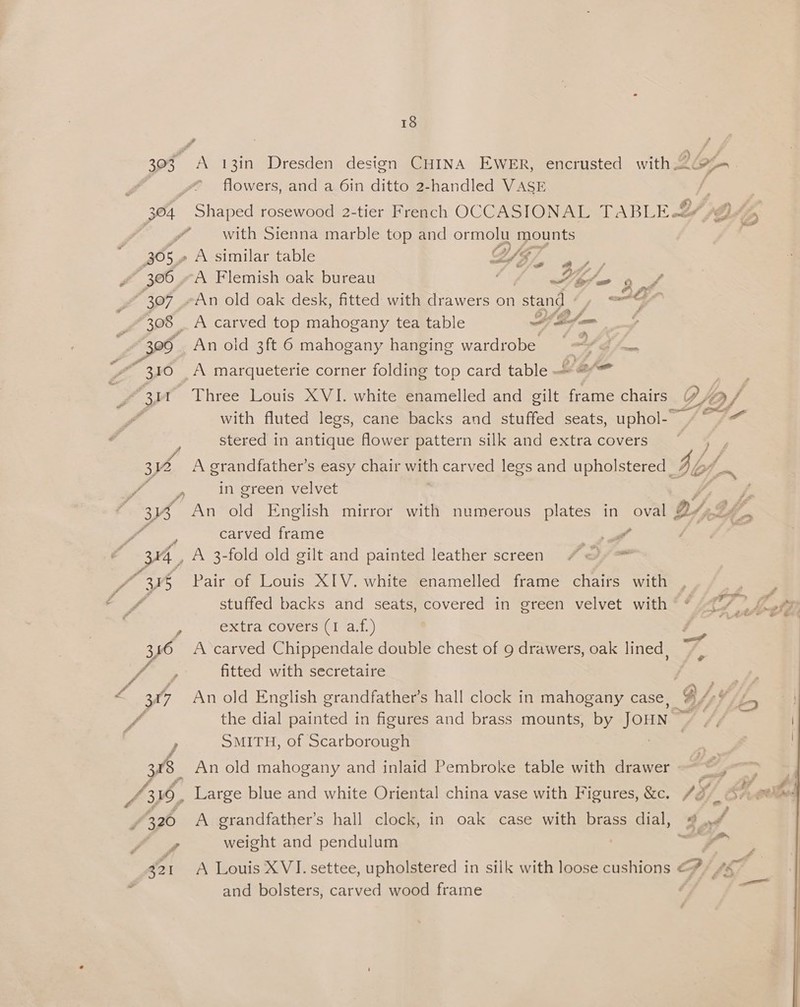 18
303 A 13in Dresden design CHINA EWER, encrusted with
flowers, and a 6in ditto 2-handled VASE
304 Shaped rosewood 2-tier French OCCASIONAL TABLE
with Sienna marble top and ormolu mounts
305 A similar table
306 A Flemish oak bureau
307 An old oak desk, fitted with drawers on stand
308 A carved top mahogany tea table
309 An old 3ft 6 mahogany hanging wardrobe
310 A marqueterie corner folding top card table
311 Three Louis XVI. white enamelled and gilt frame chairs
with fluted legs, cane backs and stuffed seats, uphol-
stered in antique flower pattern silk and extra covers
312 A grandfather's easy chair with carved legs and upholstered
in green velvet
313 An old English mirror with numerous plates in oval
carved frame
314 A 3-fold old gilt and painted leather screen
315 Pair of Louis XIV. white enamelled frame chairs with
stuffed backs and seats, covered in green velvet with
extra covers (1 a.f.)
316 A carved Chippendale double chest of 9 drawers, oak lined,
fitted with secretaire
317 An old English grandfather's hall clock in mahogany case,
the dial painted in figures and brass mounts, by JOHN
SMITH, of Scarborough
318 An old mahogany and inlaid Pembroke table with drawer
319 Large blue and white Oriental china vase with Figures, &c.
320 A grandfather's hall clock, in oak case with brass dial,
weight and pendulum
321 A Louis XVI. settee, upholstered in silk with loose cushions
and bolsters, carved wood frame